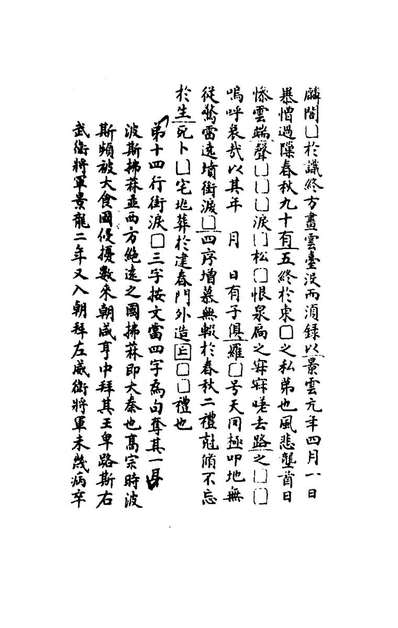 麟閣□於識終方畫雲臺没而須録以景雲元年四月一日
暴憎過隟春秋九十有五終於東□之私弟也風悲壟首日
慘雲端聲□□□淚□松□恨泉扃之寐寐嗟去路之□□
嗚呼哀哉以其年 月 日有子俱羅□号天罔極叩地無
從驚雷遶墳銜淚□四序增慕無輟於春秋二禮剋脩不忘
於生死卜□宅地葬於建春門外造丘□□禮也
弟十四行銜淚□三字按文當四字為句奪其一
波斯拂菻並西方絶遠之國拂菻即大秦也高宗時波
斯頻被大食國侵擾數來朝咸亨中拜其王卑路斯右
武衛將軍景龍二年又入朝拜左威衛將軍未幾病卒